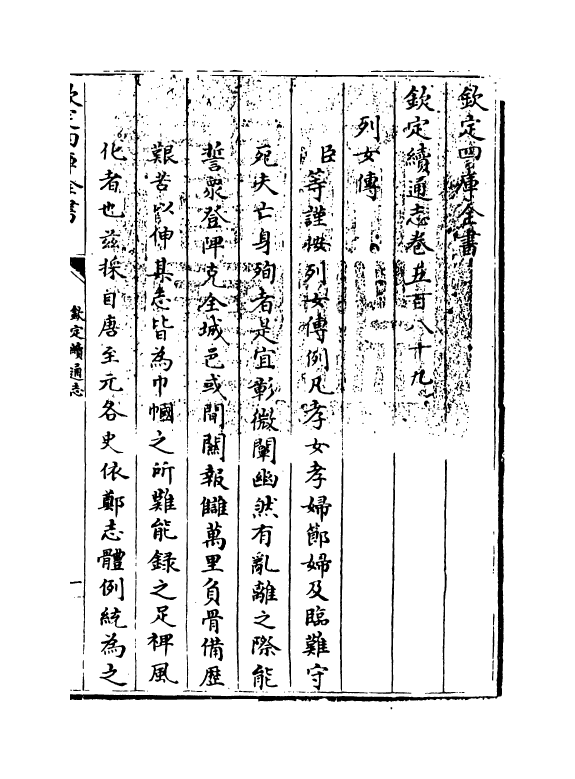 欽定四庫全書
欽定續通志卷五百八十九
列女傳
臣等謹按列女傳例凡孝女孝婦節婦及臨難守
死夫亡身殉者是宜彰微闡幽然有亂離之際能
誓衆登陴克全城邑或間關報讎萬里負骨備歴
艱苦以伸其志皆為巾幗之所難能録之足裨風
化者也兹採自唐至元各史依鄭志體例統為之
欽定四庫全書
欽定續通志
一